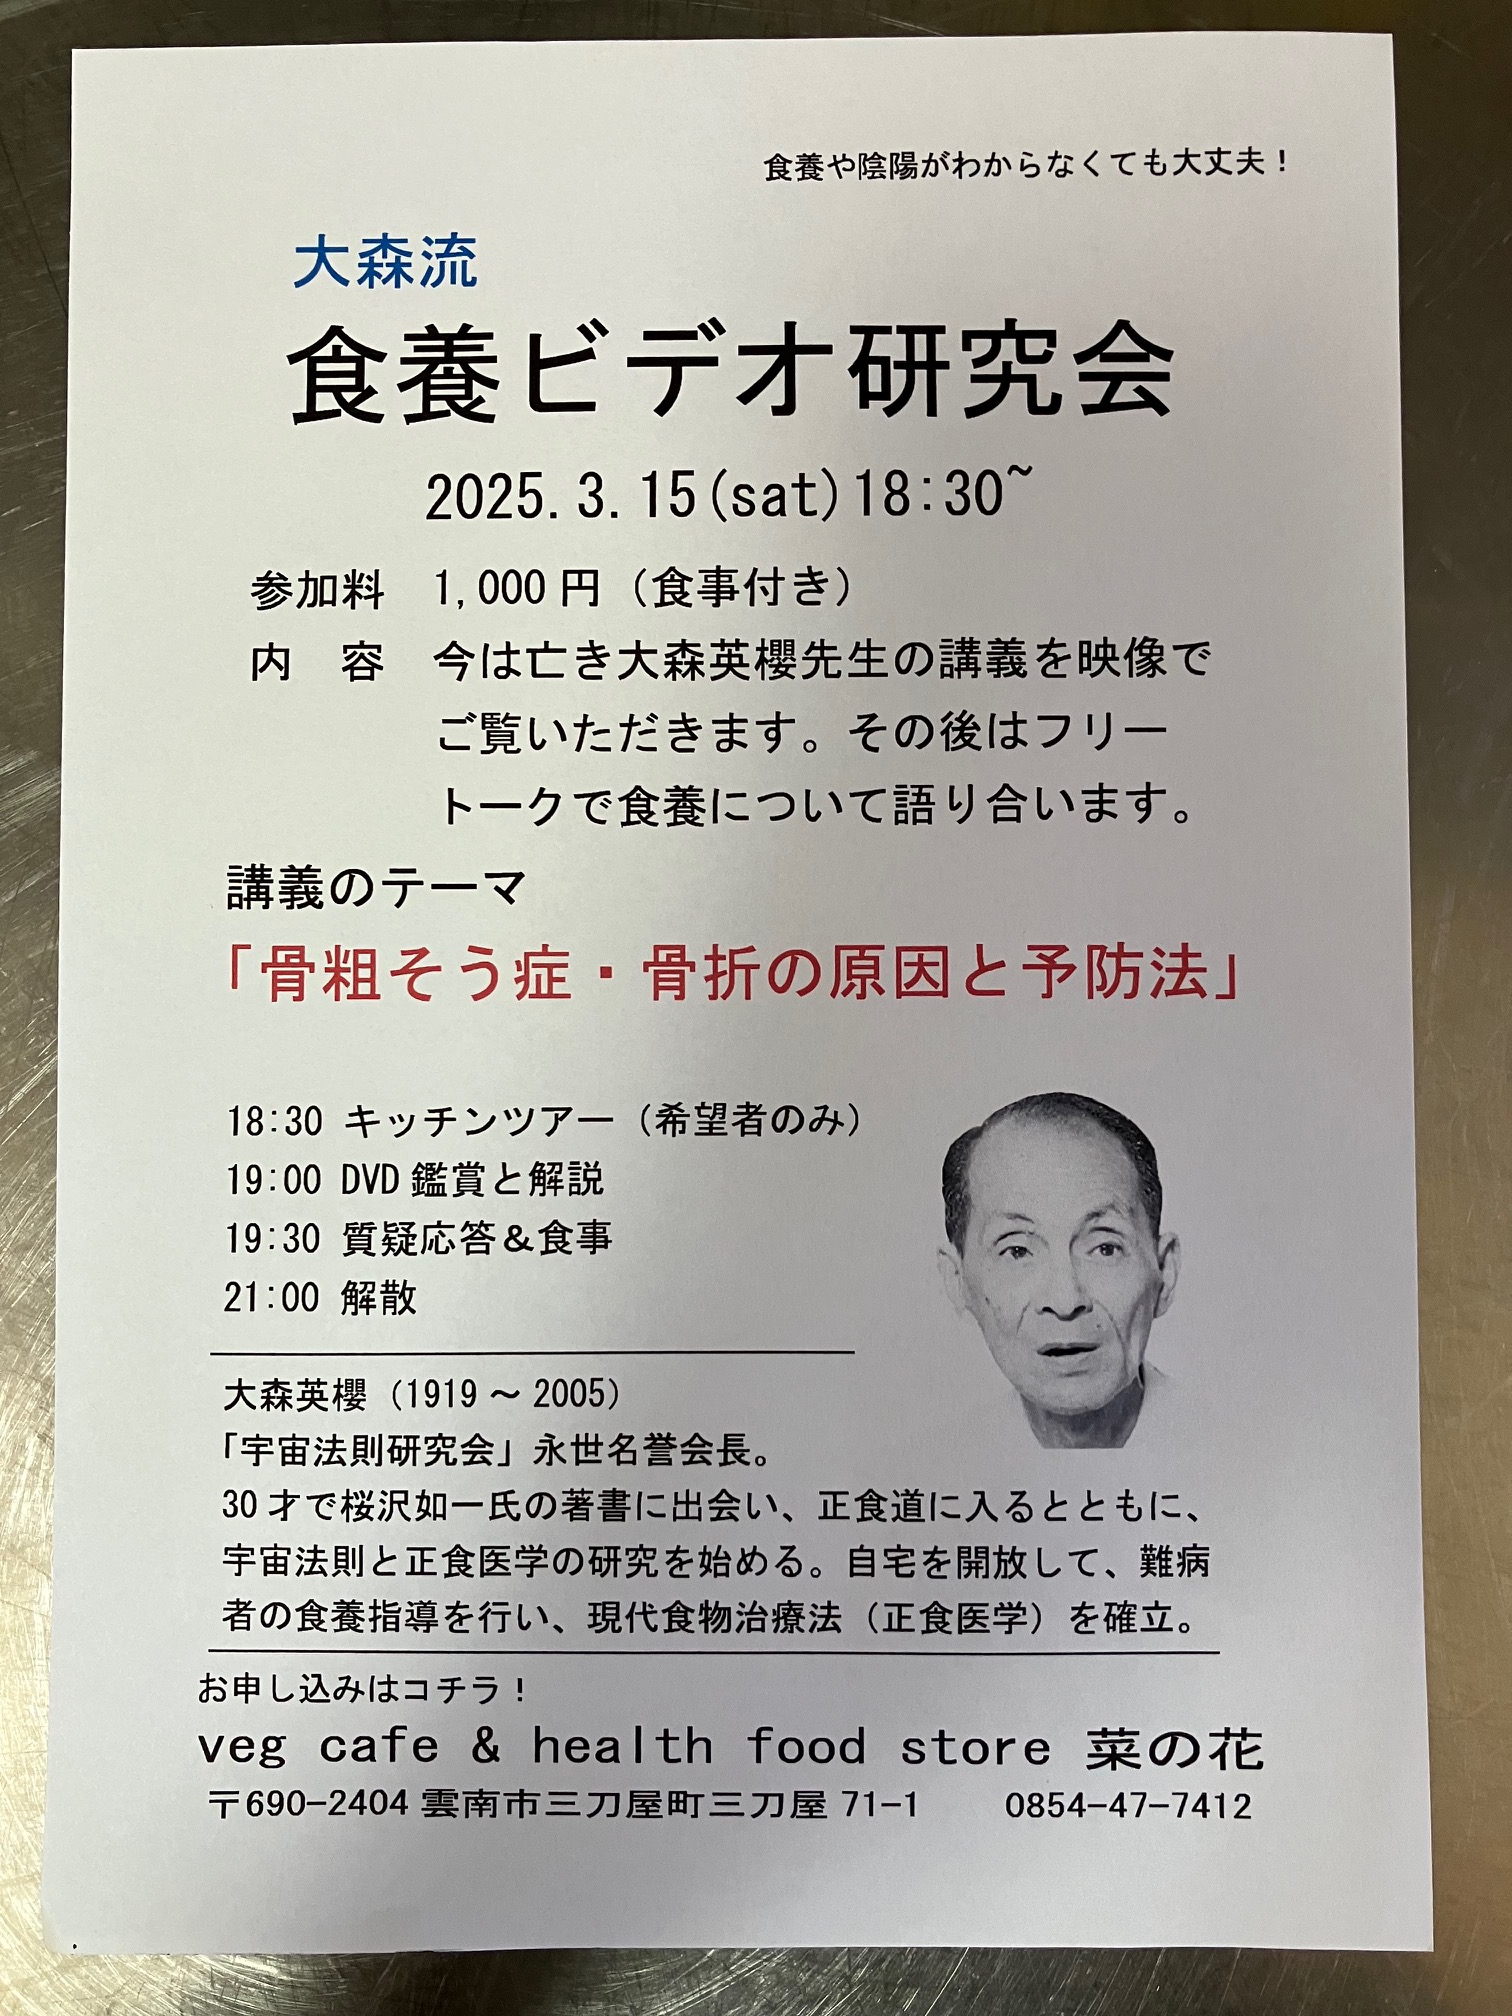 食養や陰陽がわからなくても大丈夫！
大森流
食養ビデオ研究会
2025.3.15(sat)18:30~
参加料　1,000円（食事付き）
内　容　今は亡き大森英櫻先生の講義を映像で
ご覧いただきます。その後はフリー
トークで食養について語り合います。
講義のテーマ
「骨粗そう症・骨折の原因と予防法」
18:30 キッチンツアー（希望者のみ）
19:00 DVD鑑賞と解説
19:30 質疑応答＆食事
21:00 解散
大森英櫻（1919～2005）
「宇宙法則研究会」永世名誉会長。
30才で桜沢如一氏の著書に出会い、正食道に入るとともに、
宇宙法則と正食医学の研究を始める。自宅を開放して、難病
者の食養指導を行い、現代食物治療法（正食医学）を確立。
お申し込みはコチラ！
veg cafe & health food store 菜の花
〒690-2404 雲南市三刀屋町三刀屋 71-1　0854-47-7412